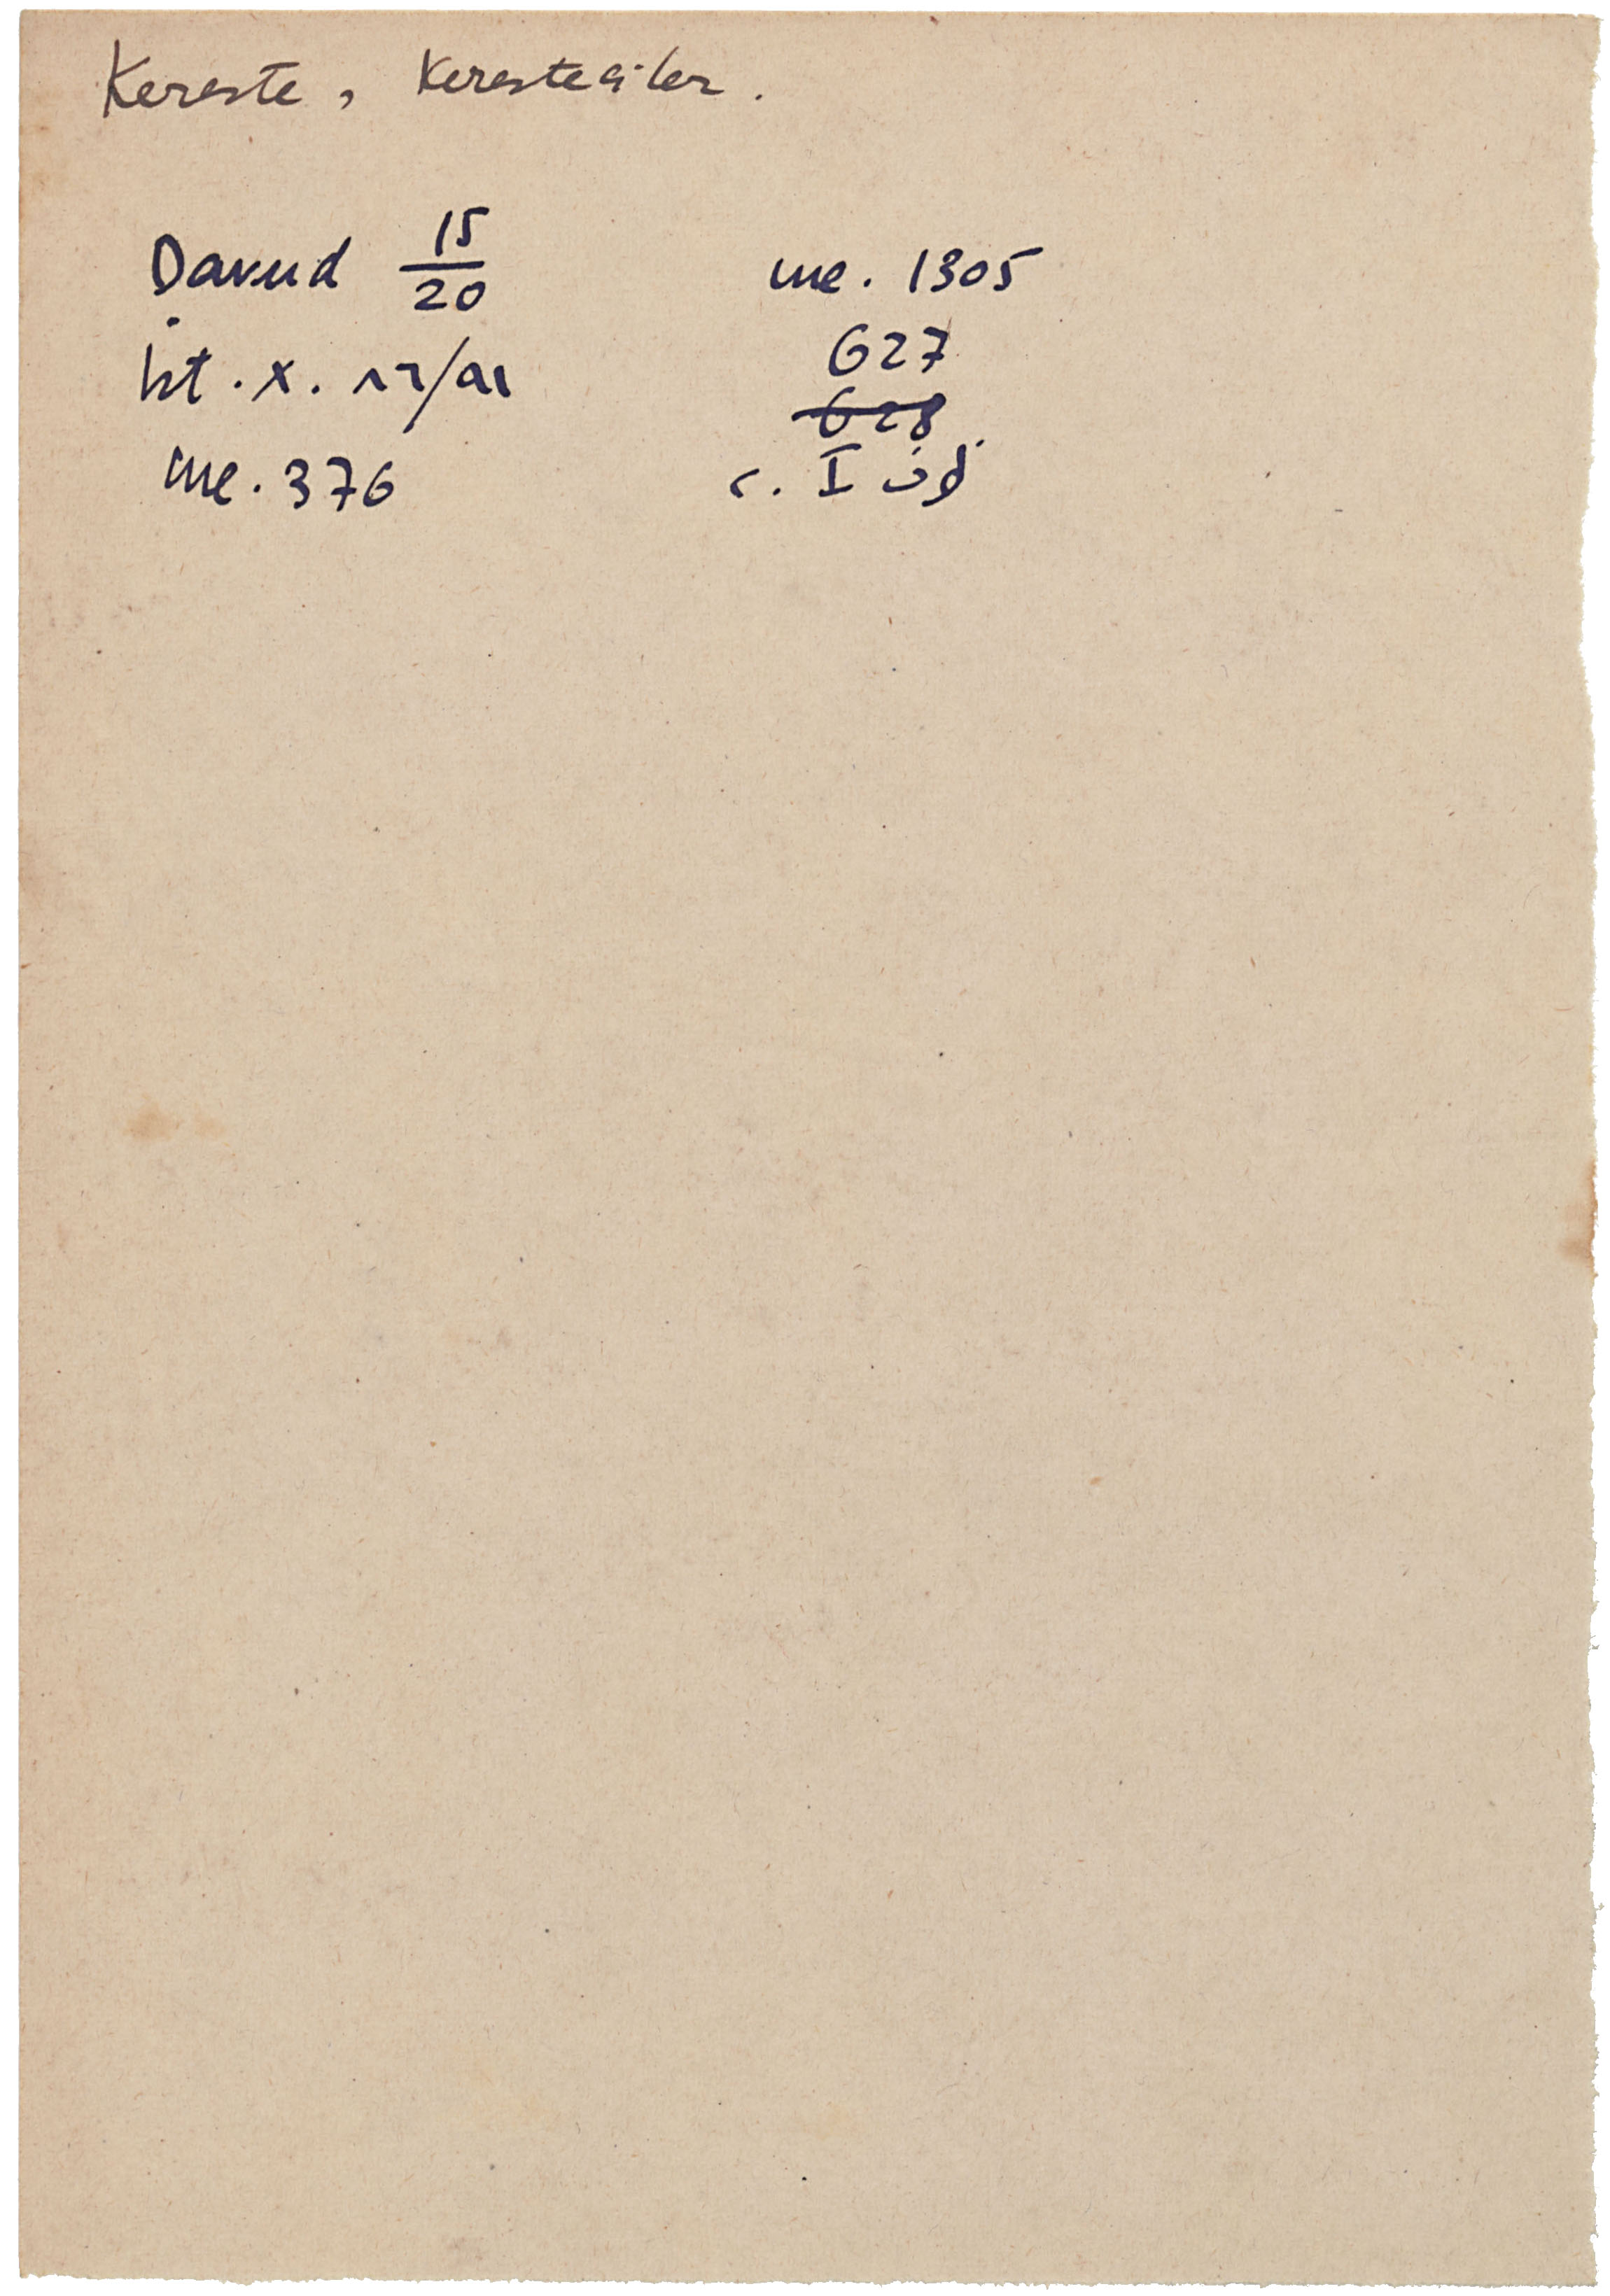 Kereste, Keresteciler.
Davud 15/20
İst. X.
me. 376
me. 1305
627
628
c. I